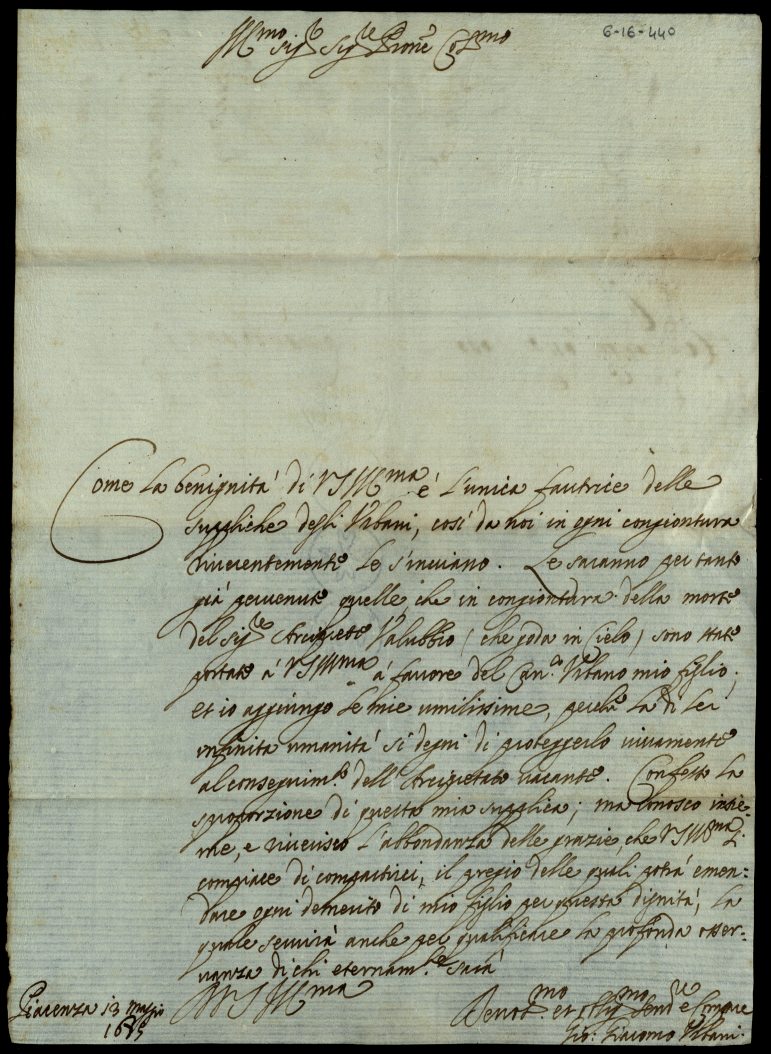 6-16-440
Ill.mo Sig.r Sig.re Prone Col.mo
Come la benignità di V.S. Ill.ma è l'unica fautrice delle
suppliche degli Urbani, così da noi in ogni congiontura
riverentemente le s'inviano. Le saranno per tanto
già pervenute quelle che in congiontura della morte
del Sig.re Arciprete Valubbio (che goda in Cielo) sono state
portate à V.S. Ill.ma à favore del Can.co Urbano mio figlio;
et io aggiungo le mie umilissime, perche la di lei
infinita umanità si degni di proteggerlo vivamente
al conseguim.to dell'Arcipretato vacante. Confesso la
sproporzione di questa mia supplica; ma conosco insie=
me, e riverisco l'abbondanza delle grazie che V.S. Ill.ma si
compiace di compartirci, il pregio delle quali potrà emen=
dare ogni demerito di mio figlio per questa dignità, la
quale servirà anche per qualificare la profonda osser=
vanza di chi eternam.te sarà
Di V.S. Ill.ma
Piacenza 13 Maggio
Devot.mo et Oblig.mo Serv.re e Compare
Gio: Giacomo Urbani.